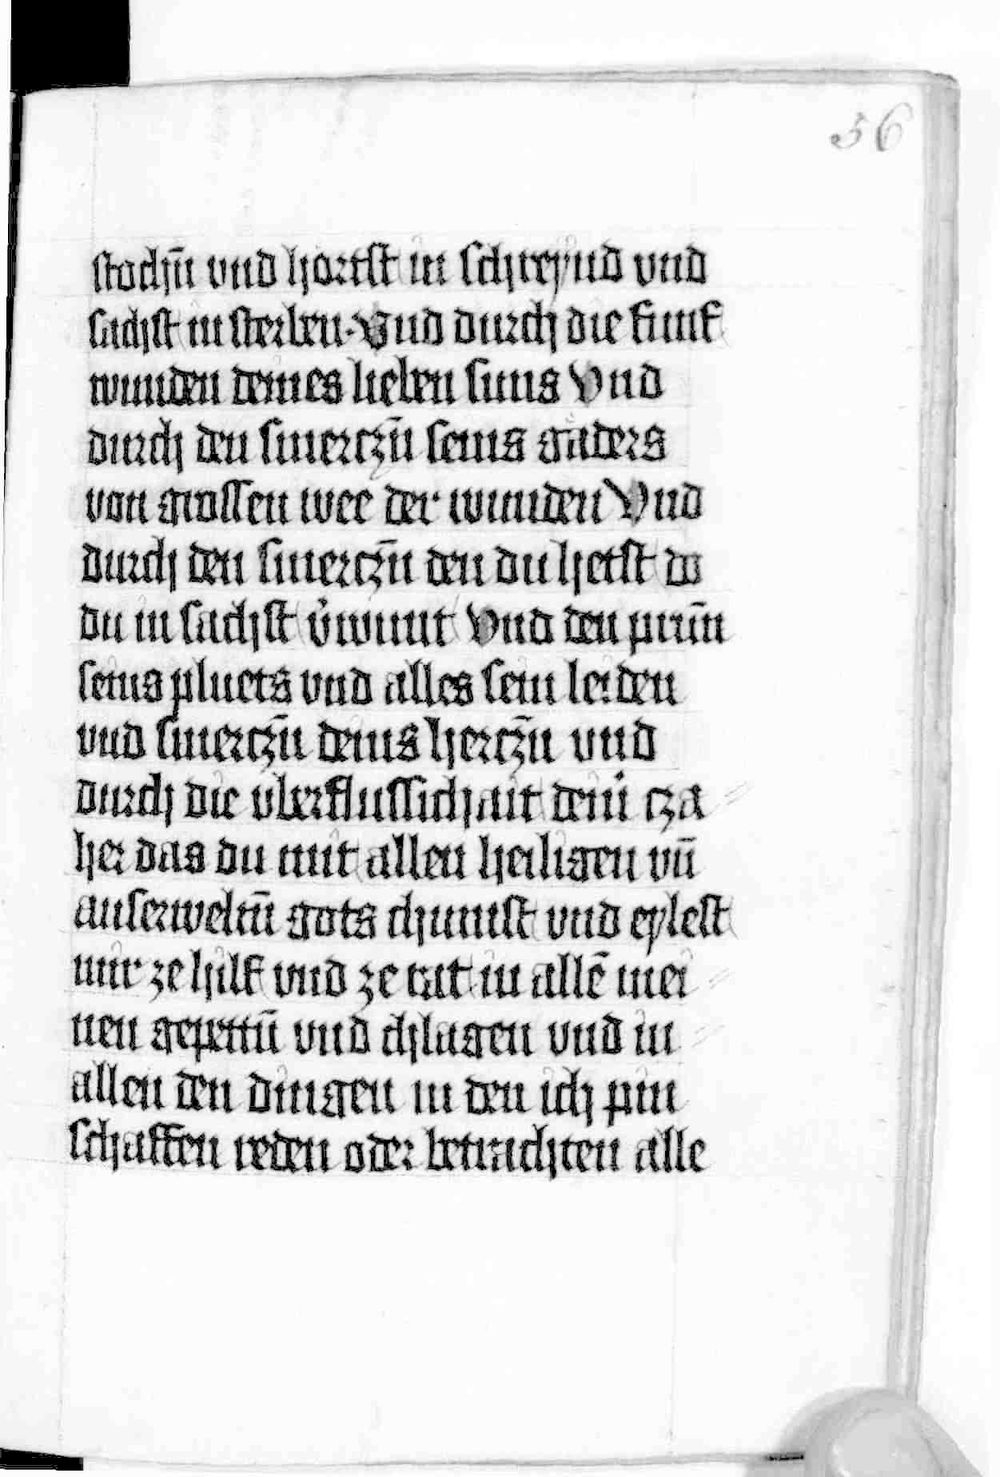 56
stochn̄ vnd hortst in schreynd vnd
sachst in sterben. Vnd durch die funf
wunden deines lieben suns Vnd
durch den smerczn̄ seins gaders
von grossen wee der wunden Vnd
durch den smerczn̄ den du hetst do
du in sachst v̈wunt Vnd den prun̄
seins pluets vnd alles sein leiden
vnd smerczn̄ deins herczn̄ vnd
durch die vberflussichait dein̄ cza
her das du mit allen heiligen vn̄
auserweltn̄ gots chumst vnd eylest
mir ze hilf vnd ze rat in allē mei
nen gepettn̄ vnd chlagen vnd in
allen den dingen in den ich pin
schaffen reden oder betrachten alle